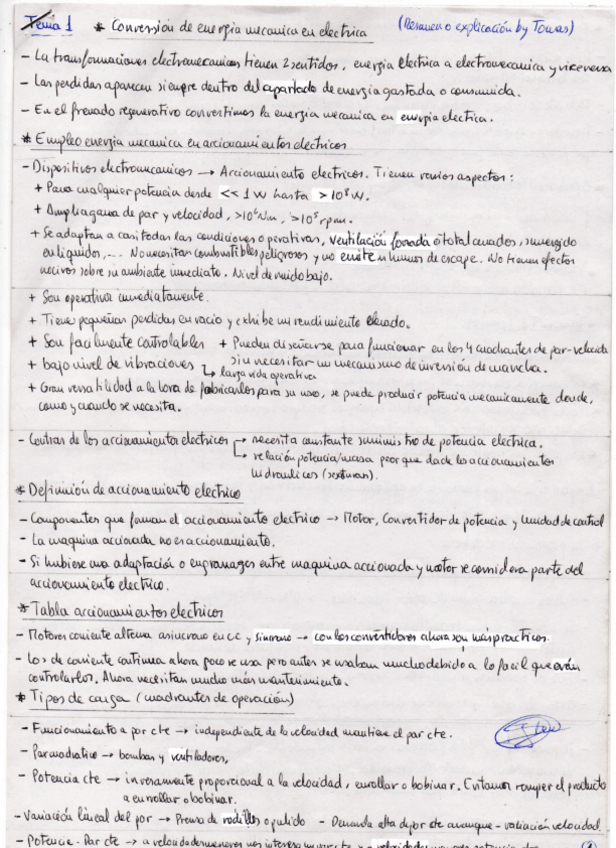 Tema 1 * Conversión de energía mecanica en electrica (Resumen o explicación by Tomas)
- La transformaciones electromecanicas tienen 2 sentidos, energia electrica a electromecanica y viceversa
- Las perdidas aparecen siempre dentro del apartado de energía gastada o consumida.
- En el frenado regenerativo convertimos la energia mecanica en energia electrica.
* Empleo energía mecanica en accionamientos electricos
- Dispositivos electromecanicos → Accionamiento electricos. Tienen varios aspectos:
+ Para cualquier potencia desde << 1 W hasta > 10⁸ W.
+ Amplia gama de par y velocidad, >10⁶ Nm, >10⁵ rpm.
+ Se adaptan a casi todas las condiciones operativas, ventilación forzada o total cerrados, sumergido
en liquidos,... No necesitan combustibles peligrosos y no emiten humos de escape. No tienen efectos
nocivos sobre su ambiente inmediato. Nivel de ruido bajo.
+ Son operativa inmediatamente.
+ Tiene pequeñas perdidas en vacio y exhibe un rendimiento elevado.
+ Son facilmente controlables + Pueden diseñarse para funcionar en los 4 cuadrantes de par-velocida
sin necesitar un mecanismo de inversión de marcha.
+ bajo nivel de vibraciones ↳ larga vida operativa
+ Gran versatilidad a la hora de fabricarlos para su uso, se puede producir potencia mecanicamente donde,
como y cuando se necesita.
- Contras de los accionamiento electricos → necesita constante suministro de potencia electrica.
↳ relación potencia/masa peor que da de lo accionamientos
hidraulicos
* Definición de accionamiento electrico
- Componentes que forman el accionamiento electrico → Motor, Convertidor de potencia y Unidad de control
- La maquina accionada no es accionamiento.
- Si hubiese una adaptación o engranages entre maquina accionada y motor se considera parte del
accionamiento electrico.
* Tabla accionamientos electricos
- Motores corriente alterna asincrono en CC y sincrono → con los convertidores ahora son más practicos.
- Los de corriente continua ahora poco se usa pero antes se usaban mucho debido a lo facil que eran
controlarlos. Ahora necesitan mucho más mantenimiento.
* Tipos de carga (cuadrantes de operación)
- Funcionamiento a par cte → independiente de la velocidad mantiene el par cte.
- Par cuadratico → bombas y ventiladores,
- Potencia cte → inversamente proporcional a la velocidad, enrollar o bobinar. Evitamos romper el producto
a enrollar o bobinar.
- Variación lineal del par → Prensa de rodillos o pulido - Demanda alta de par cte arranque - variación velocidad.
- Potencia - Par cte → a velocidades menores nos interesa